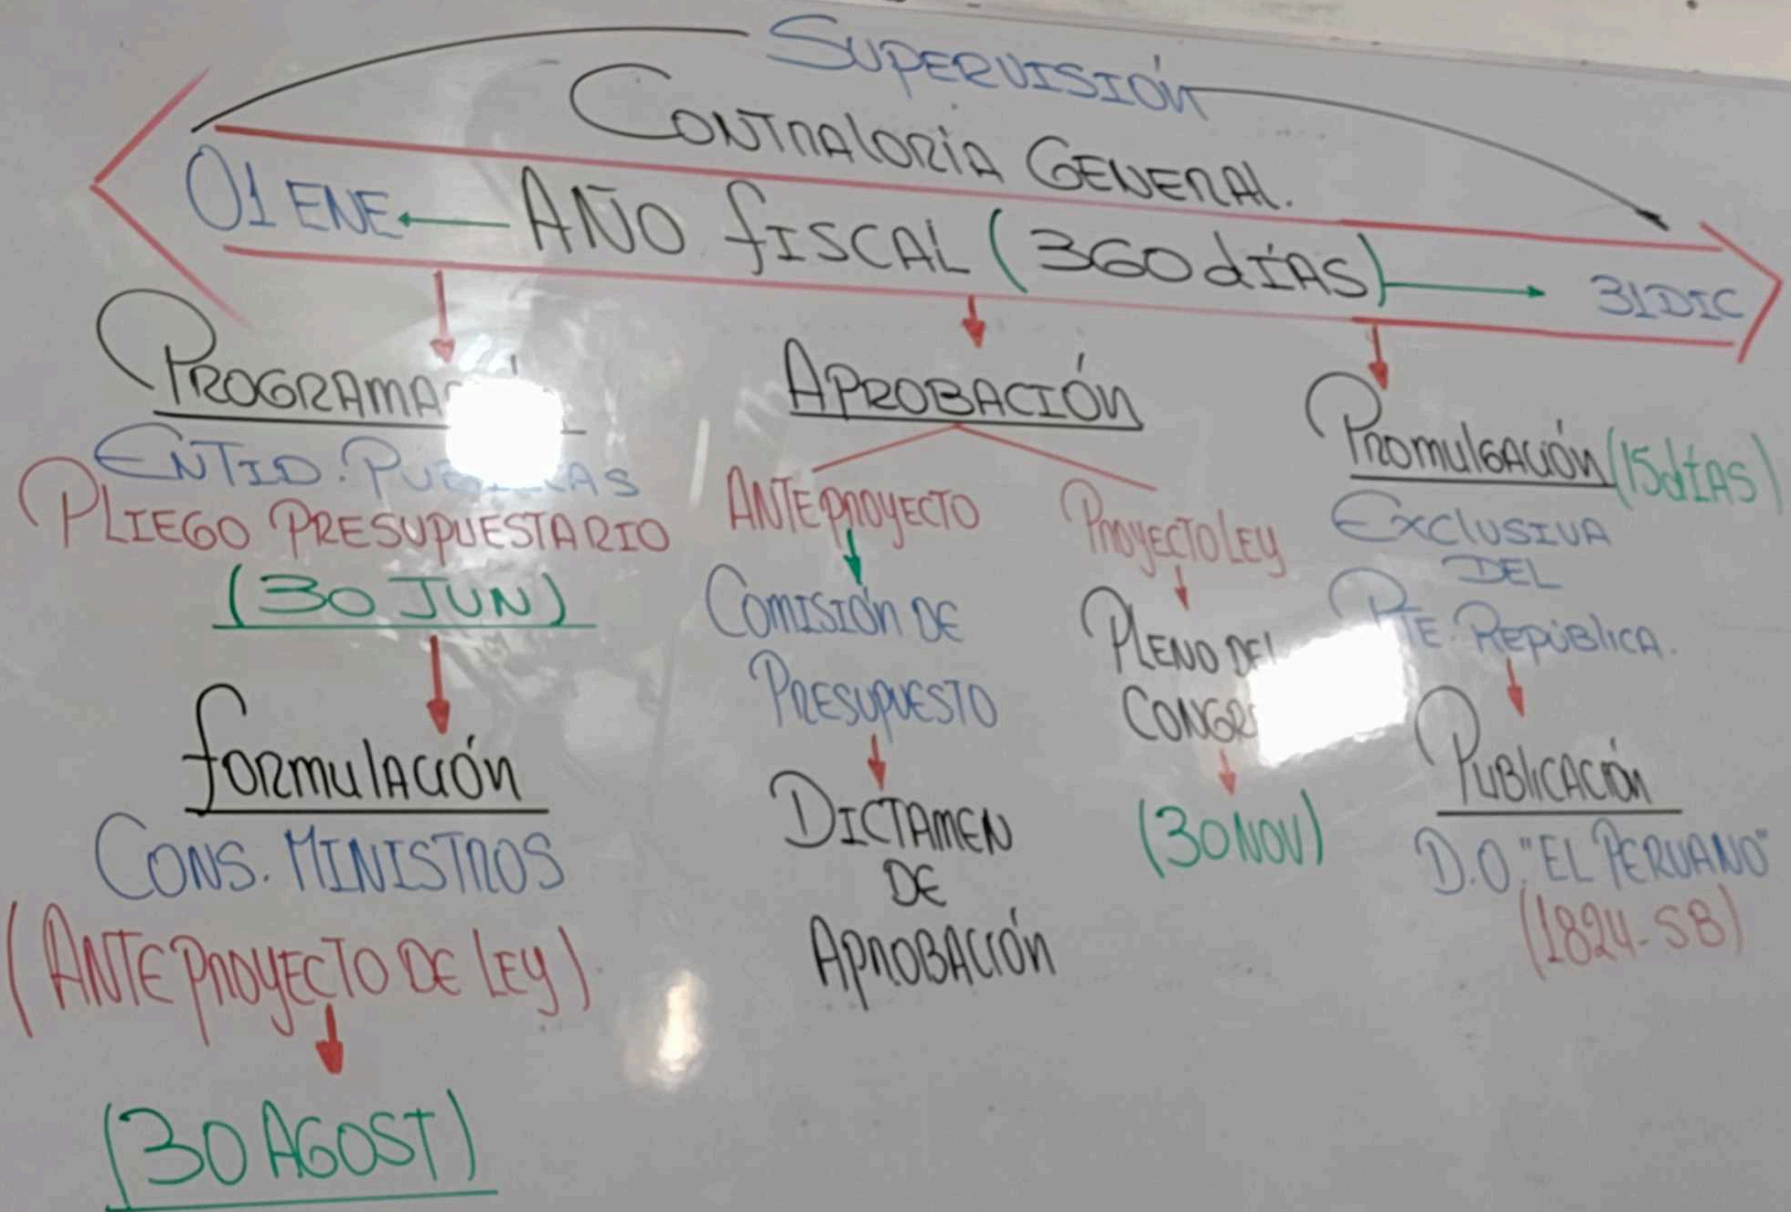 SUPERVISIÓN
CONTRALORÍA GENERAL.
01 ENE AÑO FISCAL (360 dÍAS) 31 DIC
ENTID.
PLIEGO PRESUPUESTARIO
(30 JUN)
FORMULACIÓN
CONS. MINISTROS
(ANTEPROYECTO DE LEY)
(30 AGOST)
APROBACIÓN
ANTEPROYECTO
COMISIÓN DE
PRESUPUESTO
DICTAMEN
DE
APROBACIÓN
PROYECTO LEY
PLENO
(30 NOV)
PROMULGACIÓN (15 dÍAS)
EXCLUSIVA
DEL
PTE. REPÚBLICA.
PUBLICACIÓN
D.O. "EL PERUANO"
(1824-SB)